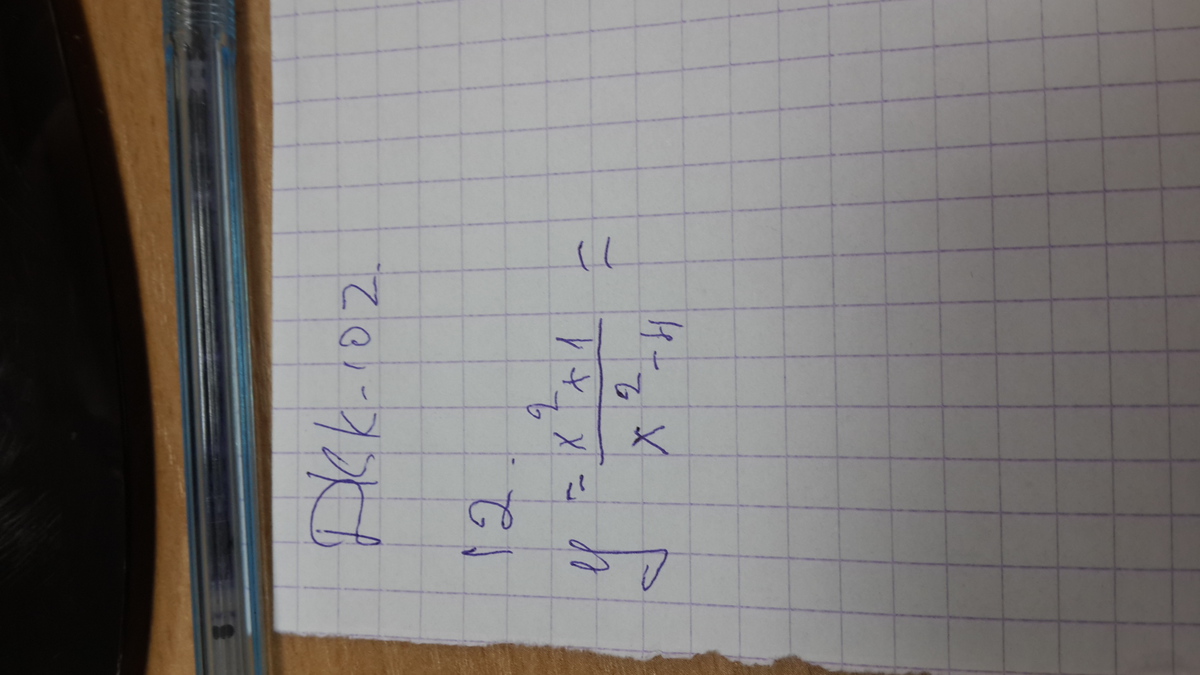 ДКК-102.
12.
y = x² + 1 / x² - 4 =